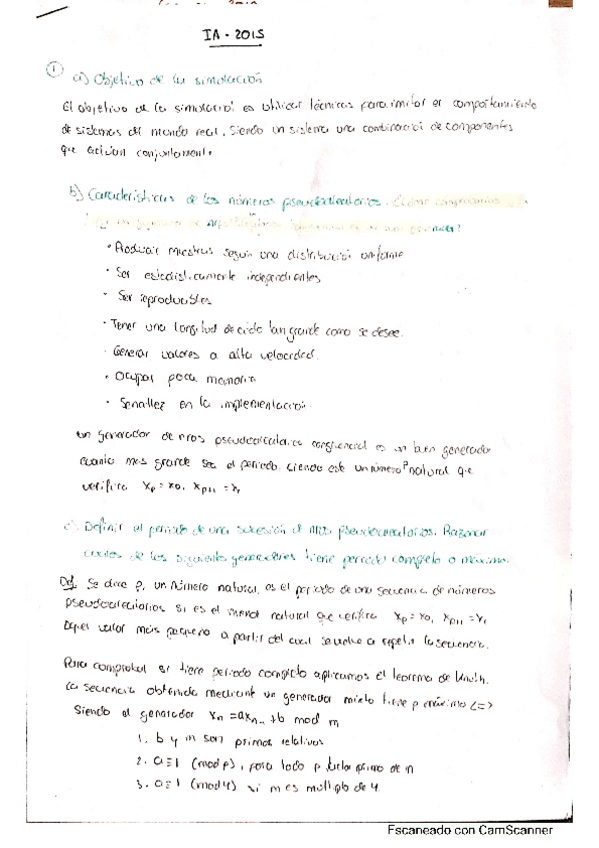 IA - 2015
① a) Objetivo de la simulación
El objetivo de la simulació es utilizar técnicas para imitar el comportamiento
de sistemas del mundo real, siendo un sistema una combinació de componentes
que actúan conjuntamente
b) Características de los números pseudoaleatorios.
· Producir muestras según una distribució uniforme
· Ser estadísticamente independientes
· Ser reproducibles
· Tener una longitud de ciclo tan grande como se desee.
· Generar valores a alta velocidad.
· Ocupar poca memoria
· Sencillez en la implementación.
un generador de nros pseudoaleatorio congruencial es un buen generador
cuanto mas grande sea el periodo, siendo este un número natural que
verifica xp = x0, xp+1 = x1
c) Definir el periodo de una sucesión de nros pseudoaleatorios. Razonar
cuales de los siguientes generadores tiene periodo completo o máximo.
Def. Se dice p, un número natural, es el periodo de una secuencia de números
pseudoaleatorios si es el menor natural que verifica xp = x0, xp+1 = x1
valor más pequeño a partir del cual se vuelve a repetir la secuencia.
Para comprobar si tiene periodo completo aplicamos el teorema de Knuth.
La secuencia obtenida mediante un generador mixto tiene p máximo <=>
Siendo el generador xn = axn-1 + b mod m
1. b y m son primos relativos
2. a ≡ 1 (mod p), para todo p factor primo de m
3. a ≡ 1 (mod 4) si m es multiplo de 4.
Escaneado con CamScanner